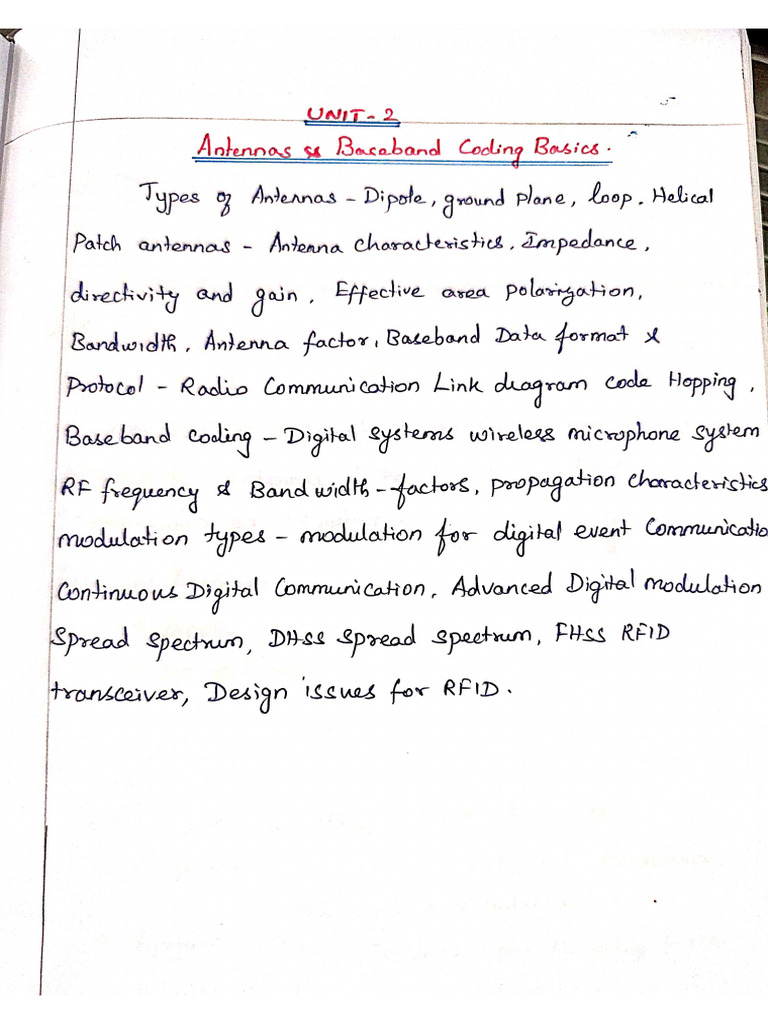 UNIT-2
Antennas & Baseband Coding Basics.
Types of Antennas - Dipole, ground plane, loop. Helical
Patch antennas - Antenna characteristics, Impedance,
directivity and gain, Effective area polarization,
Bandwidth, Antenna factor, Baseband Data format &
Protocol - Radio Communication Link diagram code Hopping,
Baseband coding - Digital systems wireless microphone system
RF frequency & Bandwidth - factors, propagation characteristics
modulation types - modulation for digital event Communicatio
Continuous Digital Communication, Advanced Digital modulation
Spread Spectrum, DHSS Spread spectrum, FHSS RFID
transceiver, Design issues for RFID.